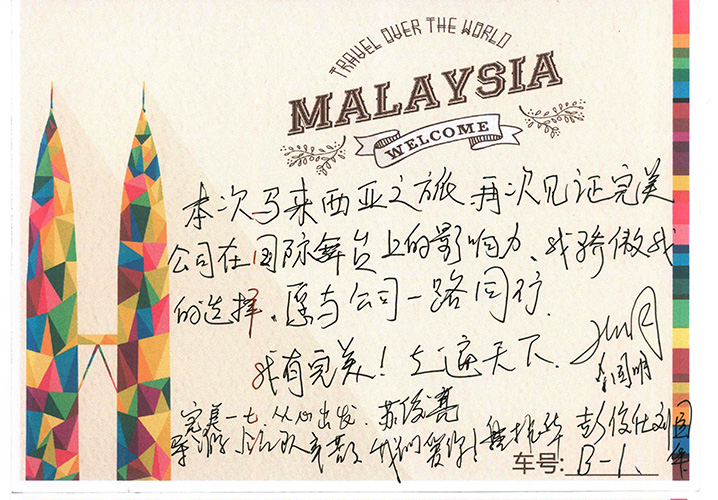 TRAVEL OVER THE WORLD
MALAYSIA
WELCOME
本次马来西亚之旅.再次见证完美
公司在国际舞台上的影响力、我骄傲我
的选择。愿与公司一路同行.
我有完美！走遍天下.
李国明
完美一七.从心出发. 苏俊亮
我们爱你! 彭俊仕 刘国华
车号: B-1.